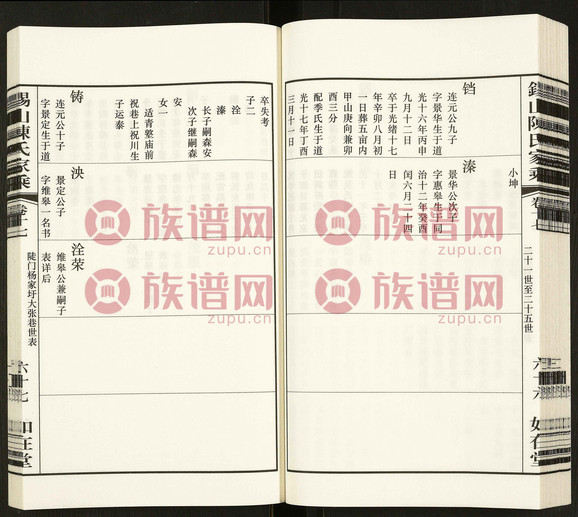 錫山陳氏家乘
卷十七
二十一世至二十五世
六十六
如在堂
小坤
铛
连元公九子
字景华生于道
光十六年丙申
九月十二日
卒于光绪十七
年辛卯八月初
一日葬五亩内
甲山庚向兼卯
酉三分
配季氏生于道
光十七年丁酉
三月十一日
溱
景华公次子
字惠皋生于同
治十二年癸酉
闰六月二十四
日
卒失考
子二
洤
溱
长子嗣森安
次子继嗣森
安
女一
适青墪庙前
祝巷上祝川生
子运泰
铸
连元公十子
字景定生于道
泱
景定公子
字维皋一名书
洤荣
维皋公兼嗣子
表详后
陡门杨家圩大张巷世表
錫山陳氏家乘
卷十七
六十七
如在堂
族谱网
zupu.cn
族谱网
zupu.cn
族谱网
zupu.cn
族谱网
zupu.cn